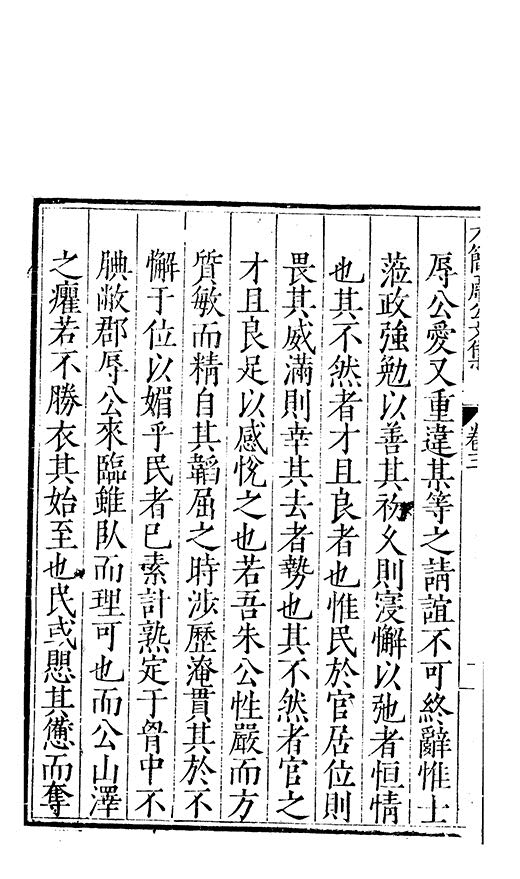 辱公愛又重違某等之請誼不可終辭惟士
蒞政強勉以善其初久則寖懈以弛者恒情
也其不然者才且良者也惟民於官居位則
畏其威滿則幸其去者勢也其不然者官之
才且良足以感悅之也若吾朱公性嚴而方
質敏而精自其韜屈之時涉歷淹貫其於不
懈于位以媚乎民者已素計熟定于胷中不
腆敝郡辱公來臨雖臥而理可也而公山澤
之癯若不勝衣其始至也民或愳其憊而奪